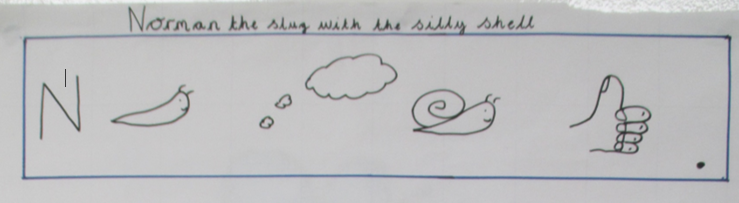 Norman the slug with the silly shell
N